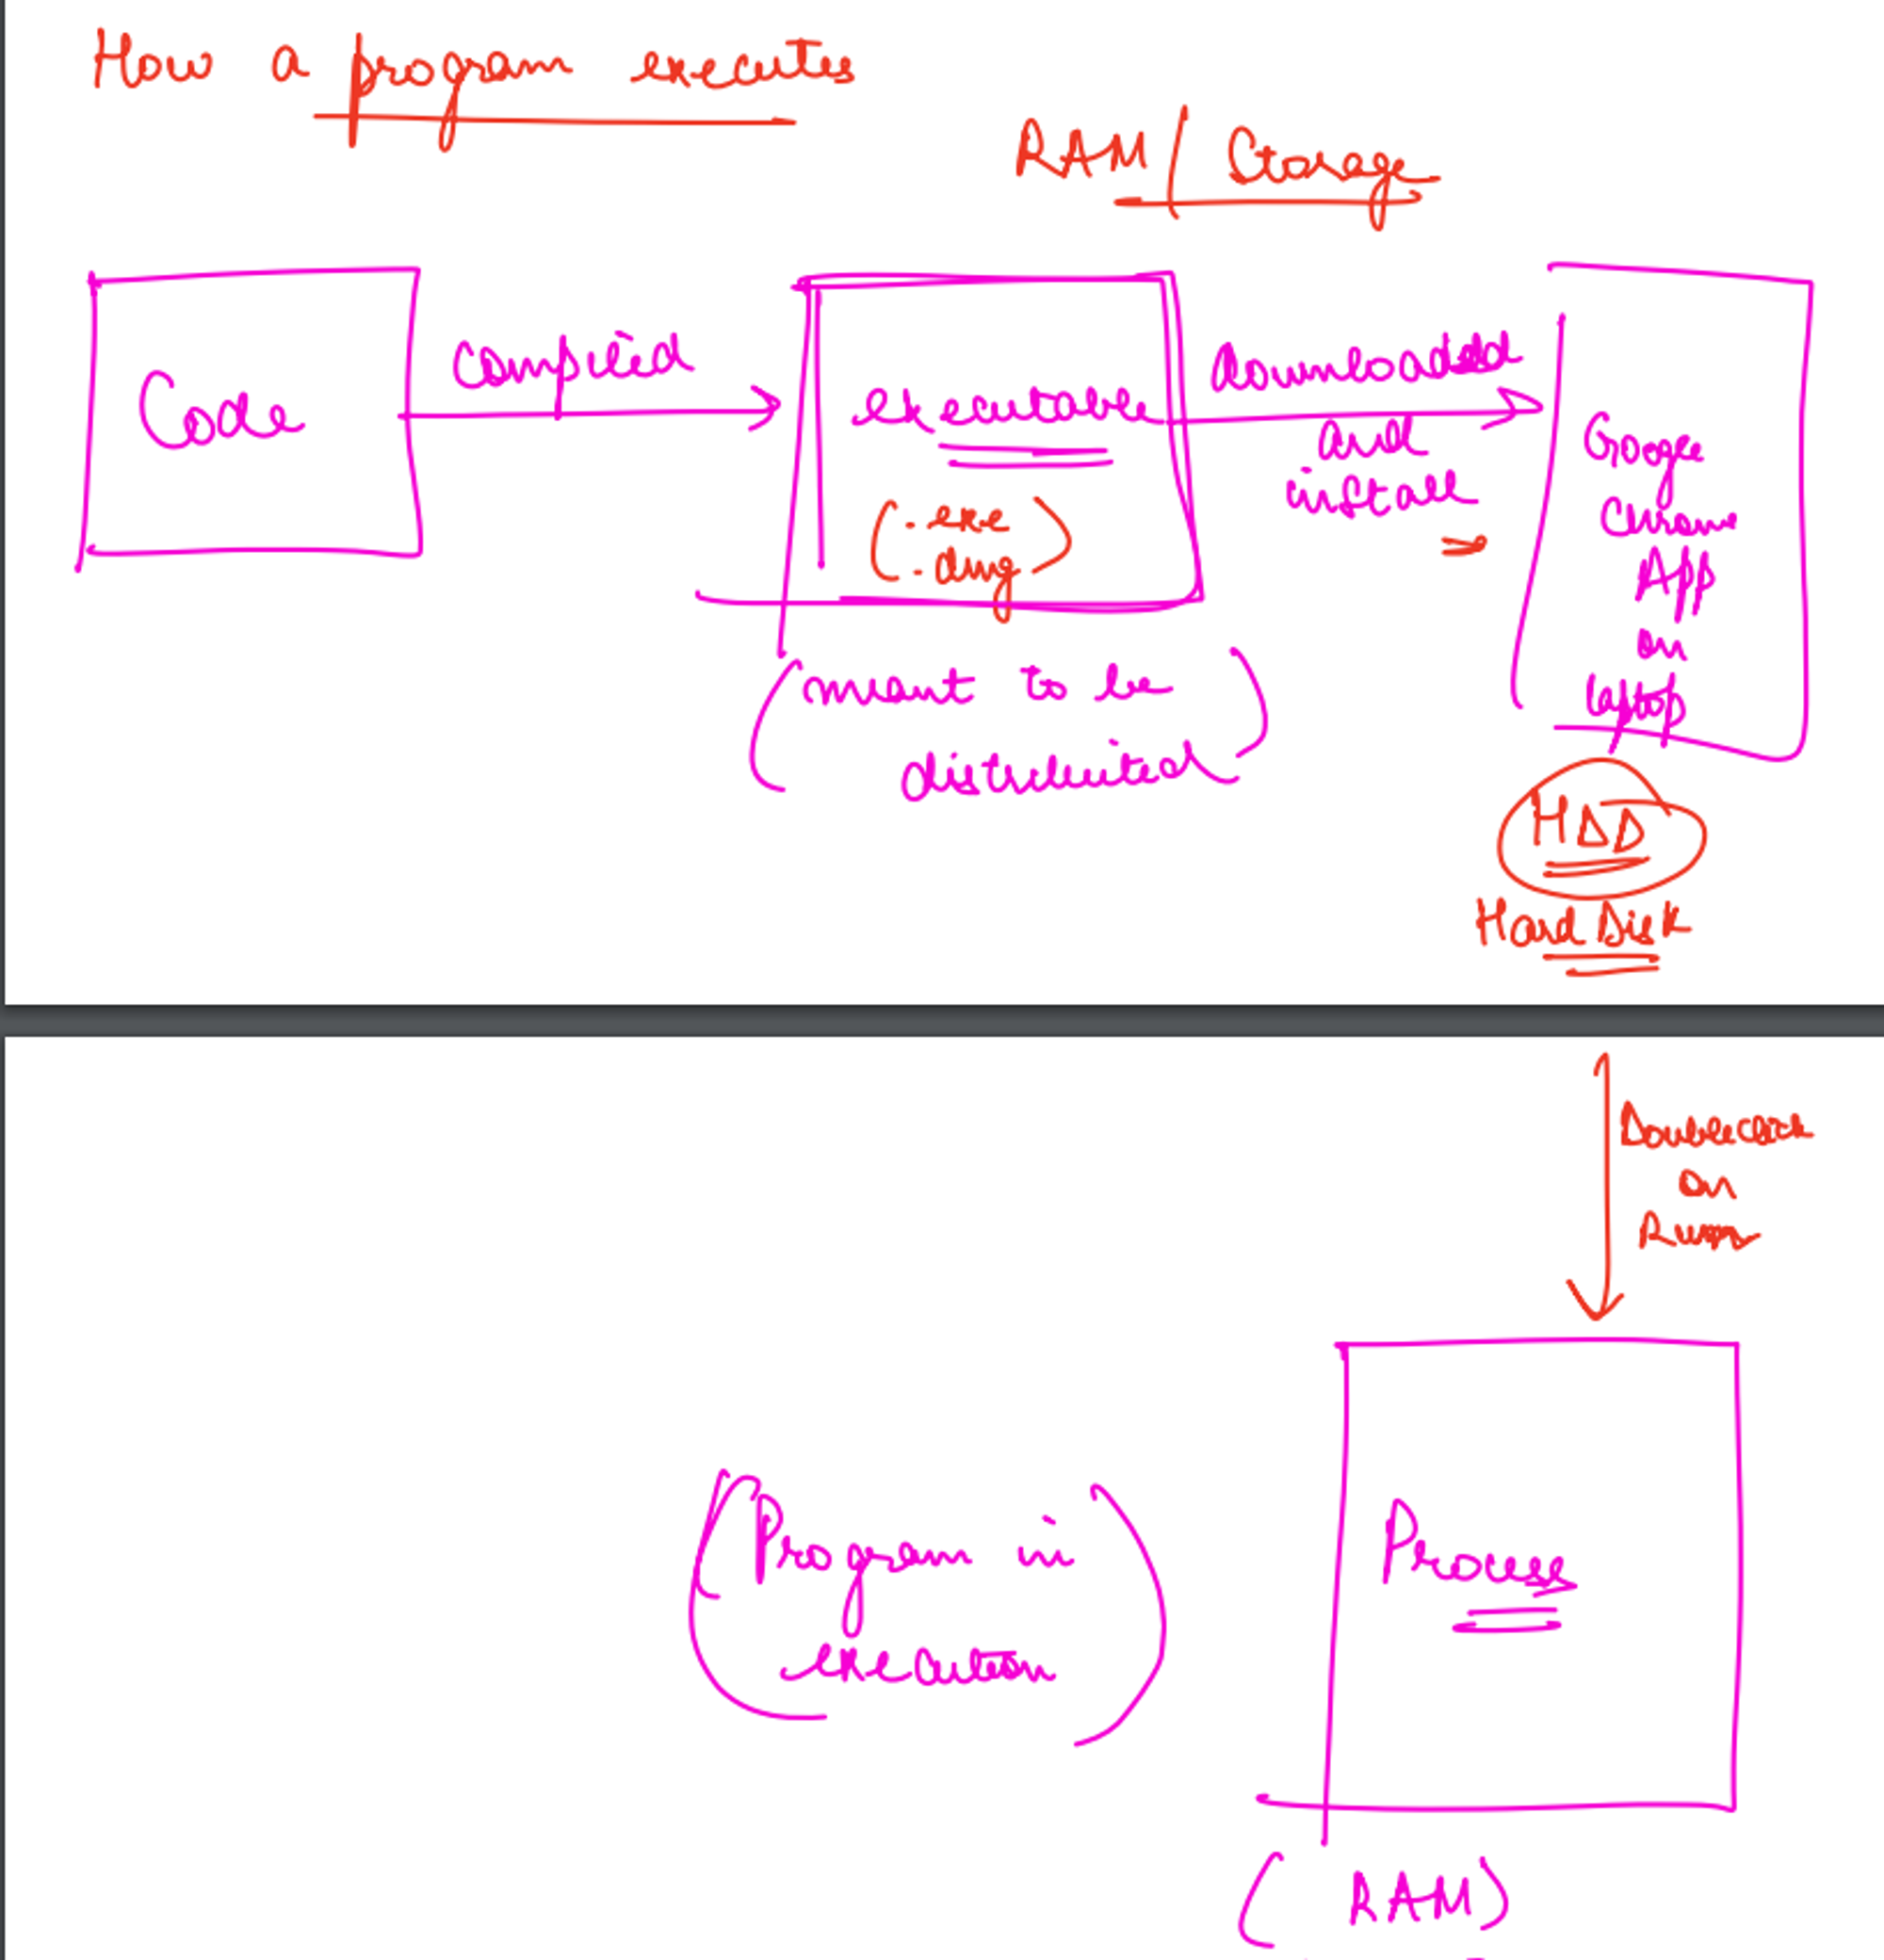 How a program executes
RAM / Storage
Code
compiled
executable
(.exe
.dmg)
(meant to be
distributed)
Downloaded
and
install
Google
Chrome
App
on
laptop
HDD
Hard Disk
Double click
on
(Program in
execution)
Process
(RAM)